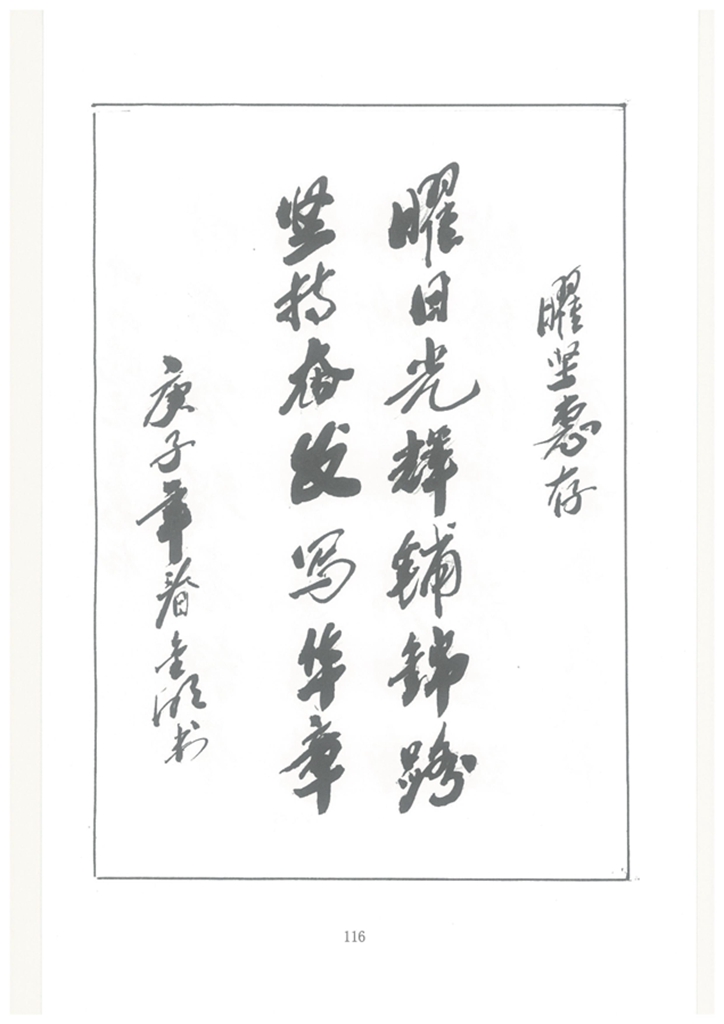 曜坚惠存
曜日光辉铺锦路
坚持奋发写华章
庚子年春
116